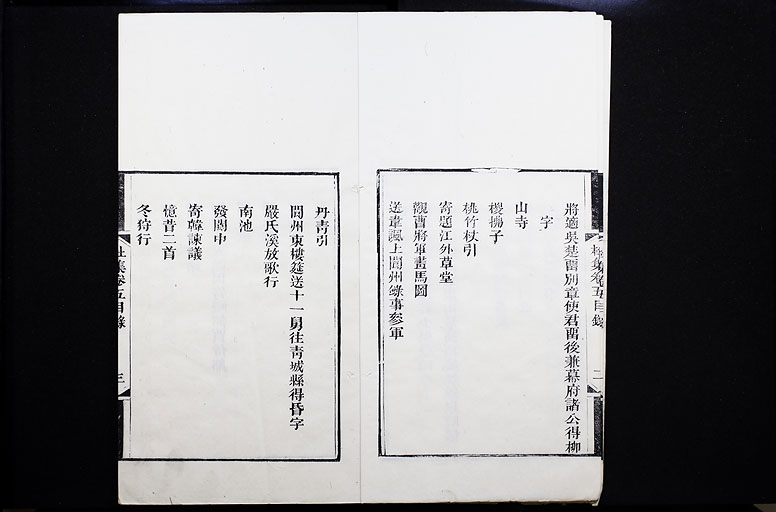 杜集卷五目錄
二
將適吳楚留別章使君留後兼幕府諸公得柳
字
山寺
椶拂子
桃竹杖引
寄題江外草堂
觀曹將軍畫馬圖
送韋諷上閬州錄事參軍
丹靑引
閬州東樓筵送十一舅往靑城縣得昏字
嚴氏溪放歌行
南池
發閬中
寄韓諫議
憶昔二首
冬狩行
杜集卷五目錄
三